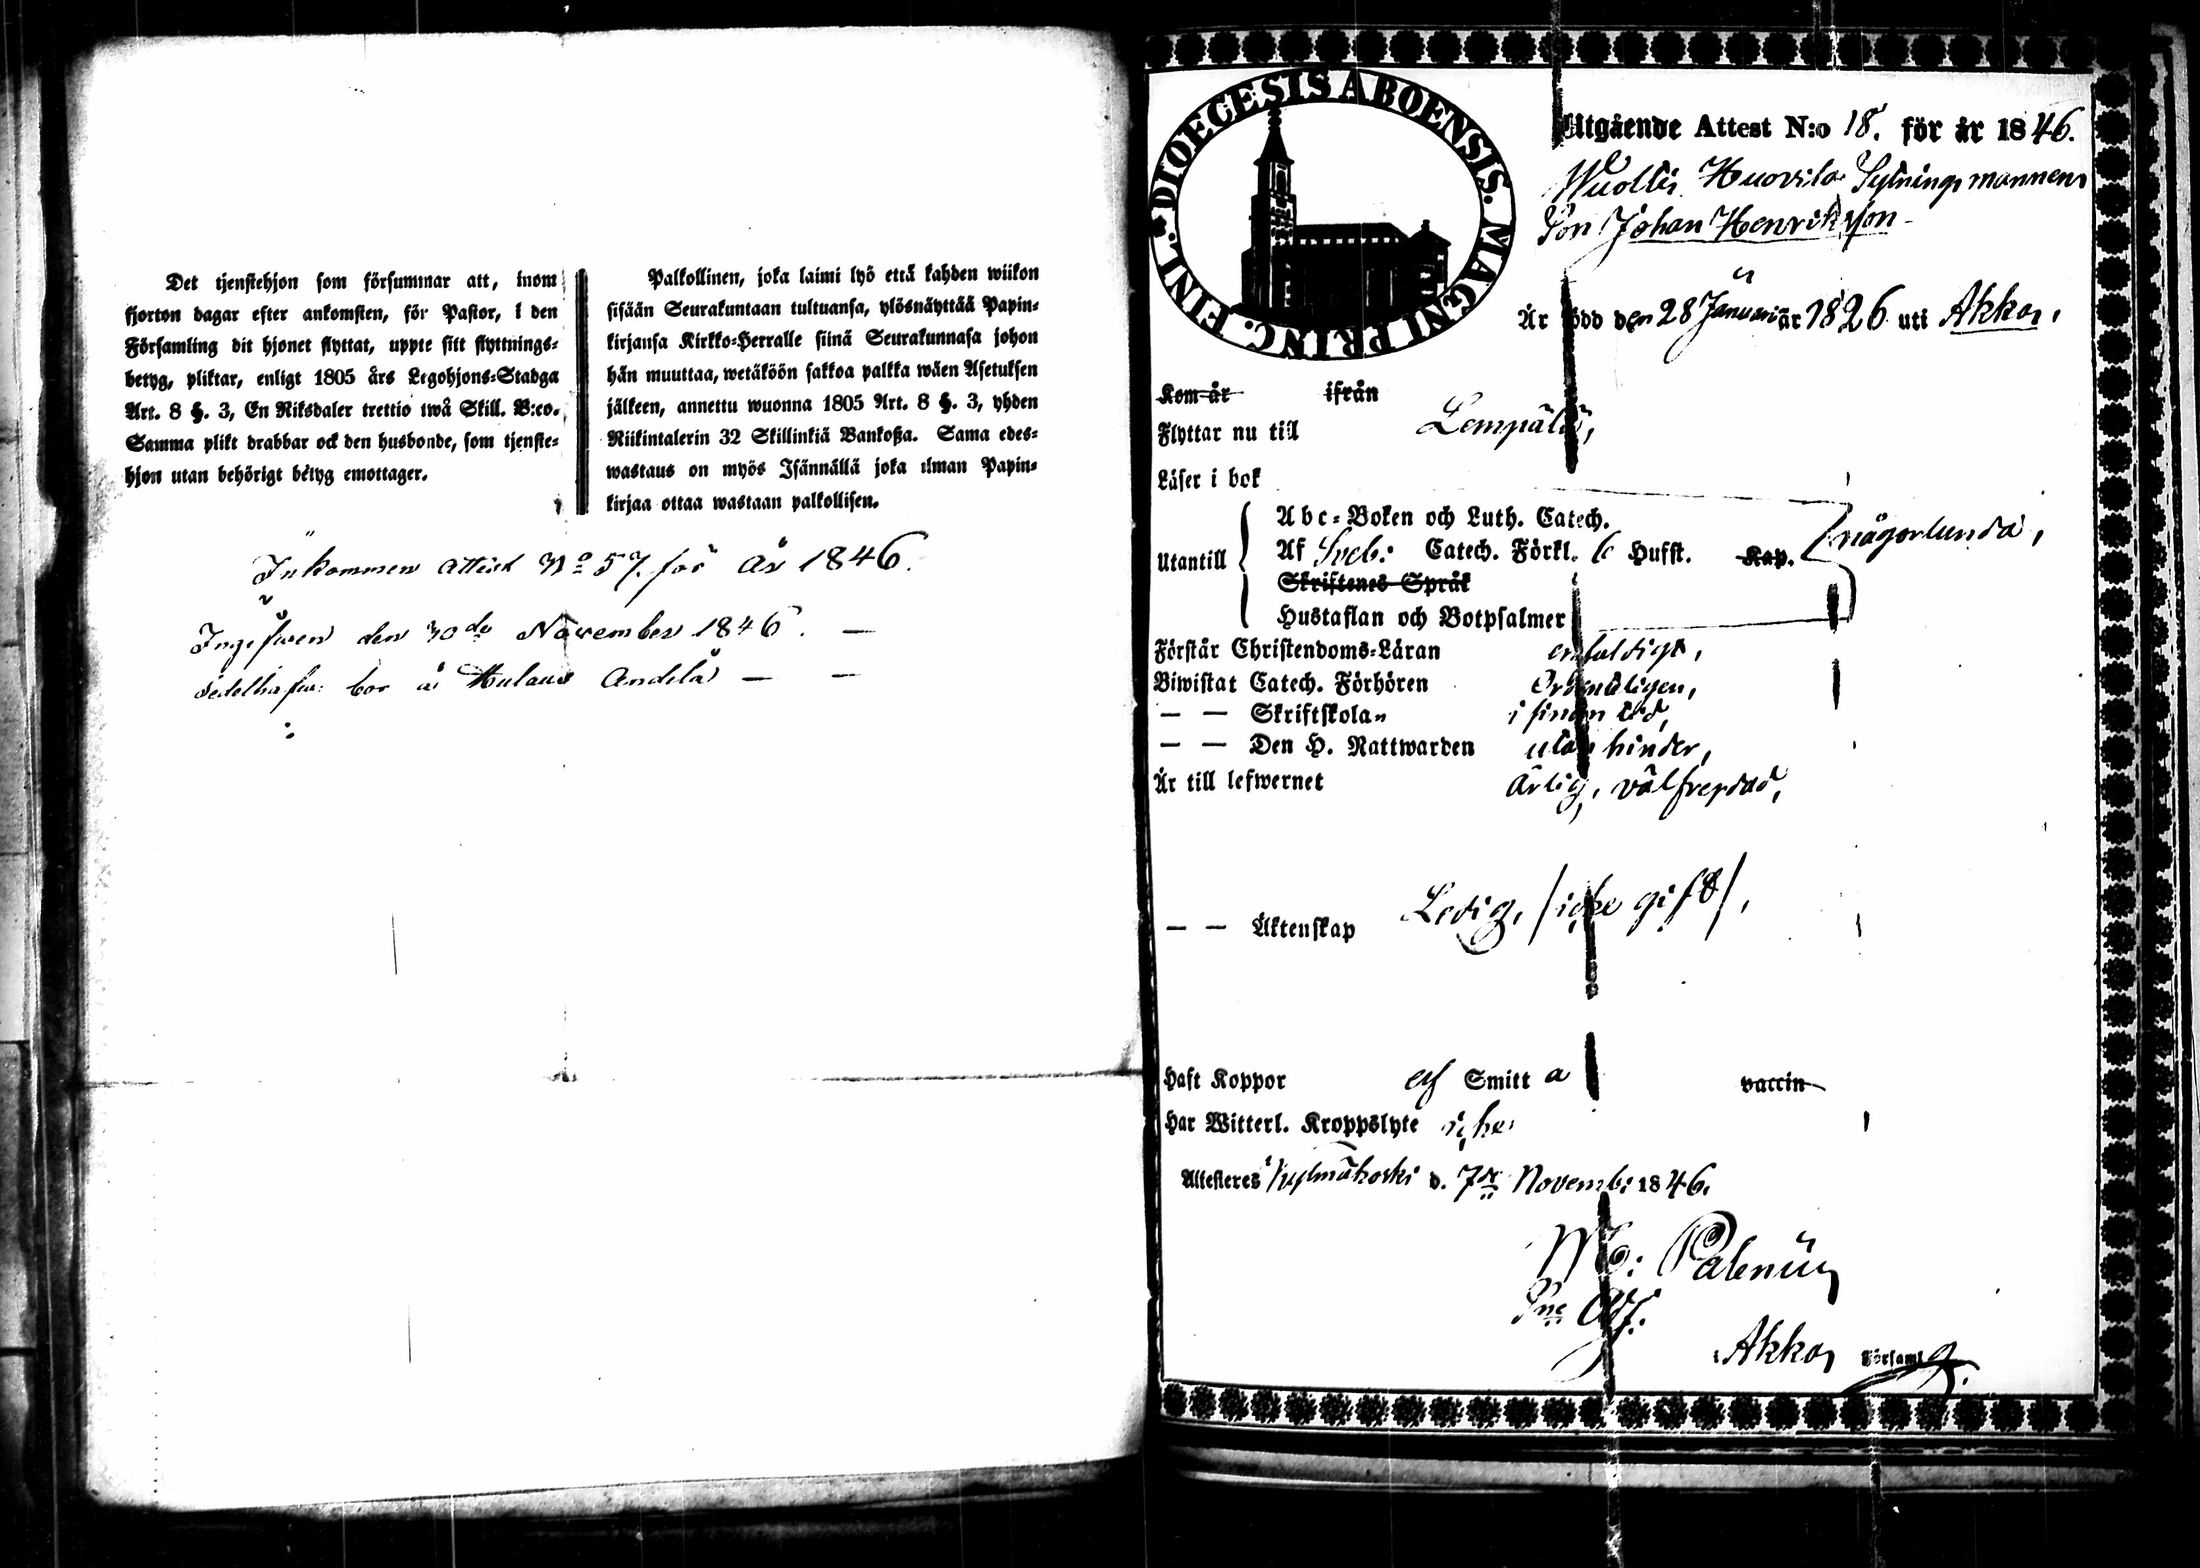 Det tjenstehjon som försummar att, inom
fjorton dagar efter ankomsten, för Pastor, i den
Församling dit hjonet flyttat, uppte sitt flyttnings-
betyg, pliktar, enligt 1805 års Legohjons-Stadga
Art. 8 §. 3, En Riksdaler trettio twå Skill. B:co.
Samma plikt drabbar ock den husbonde, som tjenste-
hjon utan behörigt bétyg emottager.
Palkollinen, joka laimi lyö että kahden wiikon
sisään Seurakuntaan tultuansa, ylösnäyttää Papin-
kirjansa Kirkko-Herralle siinä Seurakunnasa johon
hän muuttaa, wetäköön sakkoa palkka wäen Asetuksen
jälkeen, annettu wuonna 1805 Art. 8 §. 3, yhden
Riikintalerin 32 Skillinkiä Bankoßa. Sama edes-
wastaus on myös Isännällä joka ilman Papin-
kirjaa ottaa wastaan palkollisen.
Inkommen attest No 57. för år 1846.
den 30de November 1846. —
bor å — —
DIOECESIS ABOENSIS. MAGNI PRINC. FINL.
Utgående Attest N:o 18. för år 1846.
Huovila Sytningsmannens
Son Johan Henriksson
Är född den 28 Januari år 1826 uti Akkas,
Kom år ifrån
Flyttar nu till Lempälä,
Läser i bok
Utantill
Abc-Boken och Luth. Catech.
Af Sveb: Catech. Förkl. 6 Hufst. Kap.
Skriftenes Språk
Hustaflan och Botpsalmer
någorlunda,
Förstår Christendoms-Läran enfaldigt,
Biwistat Catech. Förhören Ordenteligen,
— — Skriftskolan i sinom tid,
— — Den H. Nattwarden utan hinder,
Är till lefwernet Ärlig, välfrejdad,
— — Äktenskap Ledig, /icke gift/,
Haft Koppor ej Smitt a vaccin
Har Witterl. Kroppslyte icke
Attesteres Kylmäkoski d. 7de Novemb: 1846.
Akkas Församlg.